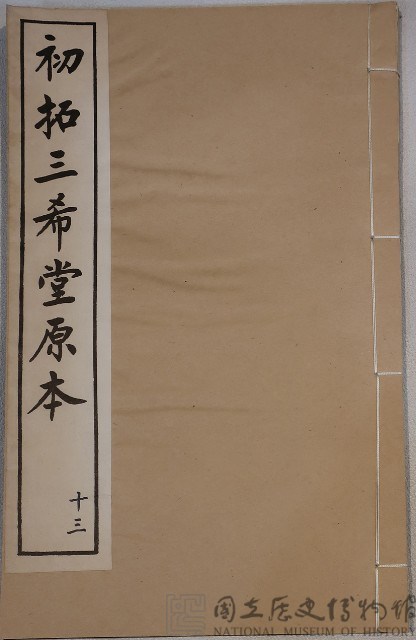 初拓三希堂原本
十三
國立歷史博物館
NATIONAL MUSEUM OF HISTORY